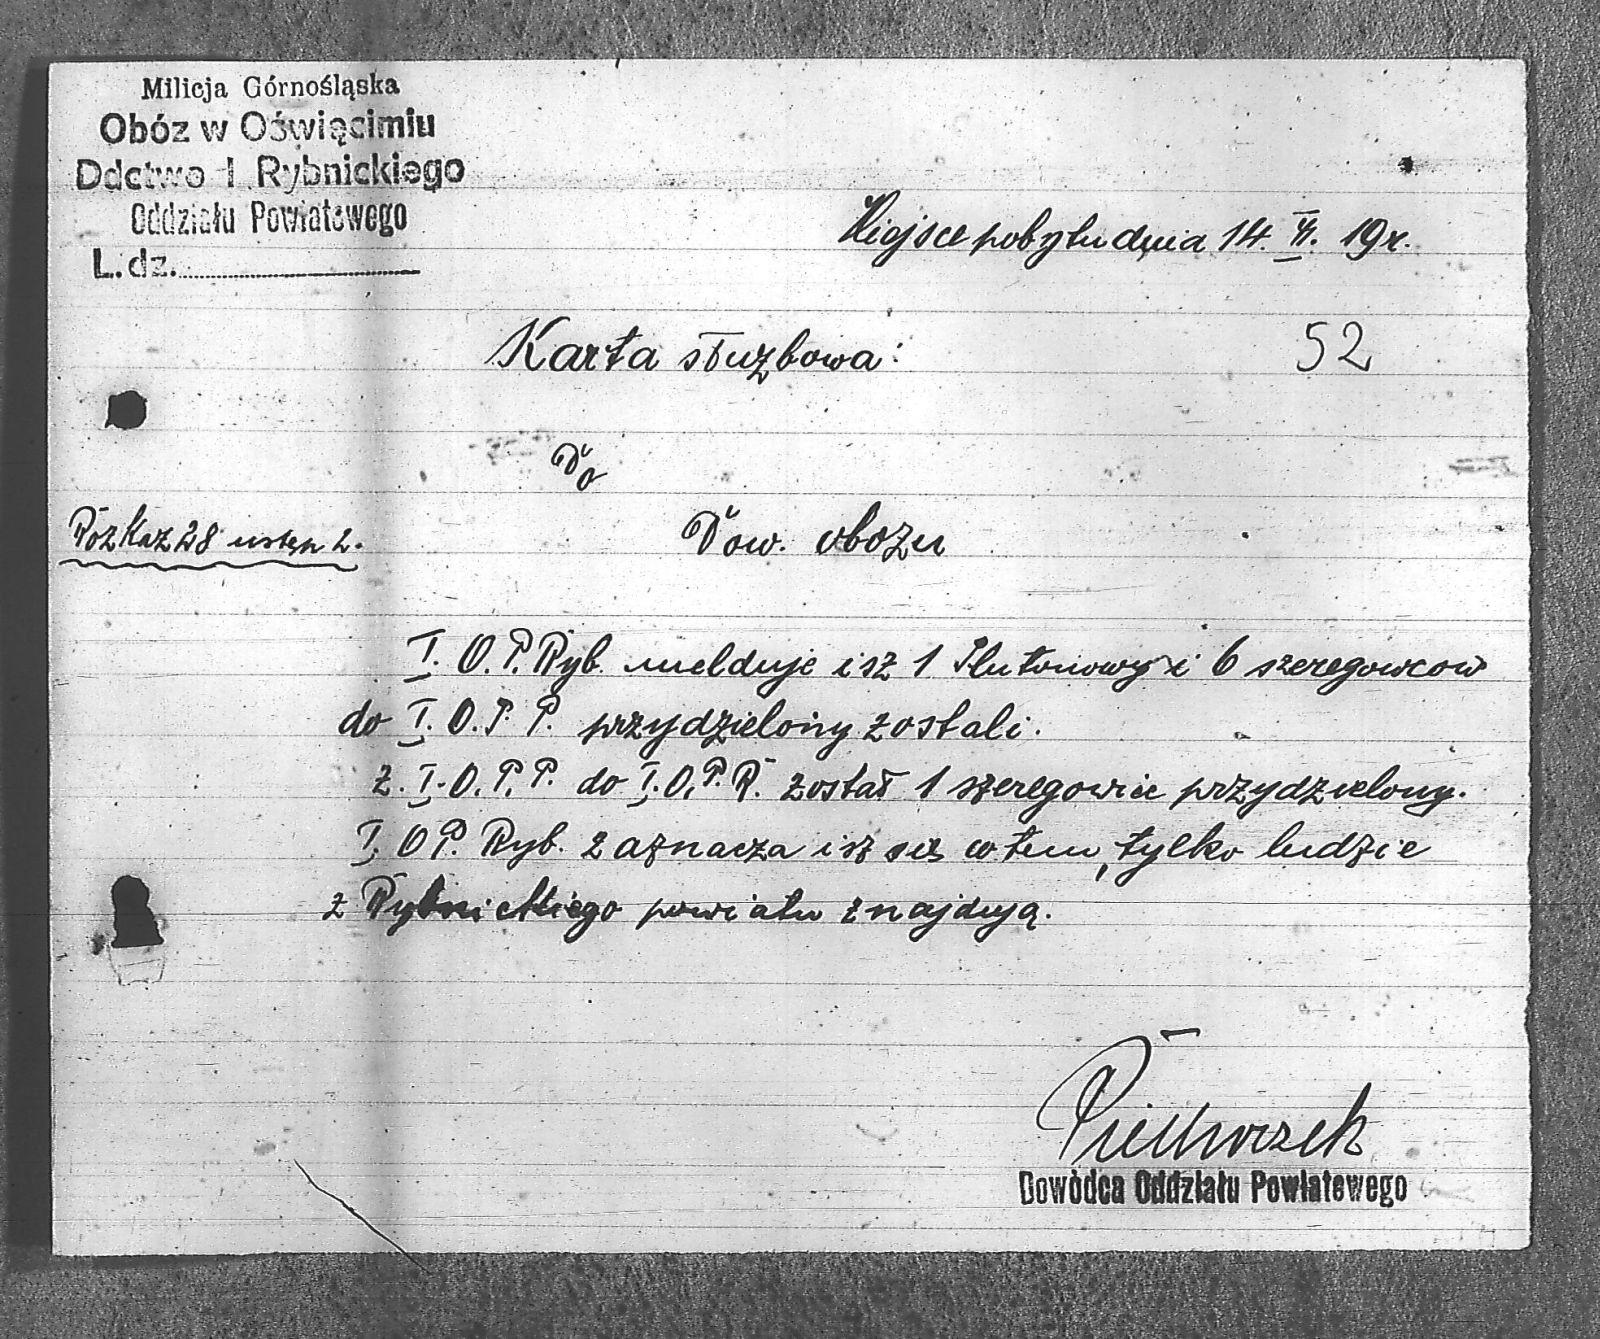 Milicja Górnośląska
Obóz w Oświęcimiu
Ddctwo I Rybnickiego
Oddziału Powiatowego
L. dz.
Miejsce pobytu dnia 14. VI. 19 r.
Karta służbowa:
52
Do
Rozkaz 28 ustęp 2.
Dow. obozu
I. O. P. Ryb. melduje isz 1 Plutonowy i 6 szeregowcow
do I. O. P. P. przydzielony zostali.
z. I. O. P. P. do I. O. P. R. został 1 szeregowiec przydzielony.
I. O P. Ryb. zaznacza isz się w tem, tylko ludzie
z Rybnickiego powiatu znajdują.
Dowódca Oddziału Powiatowego